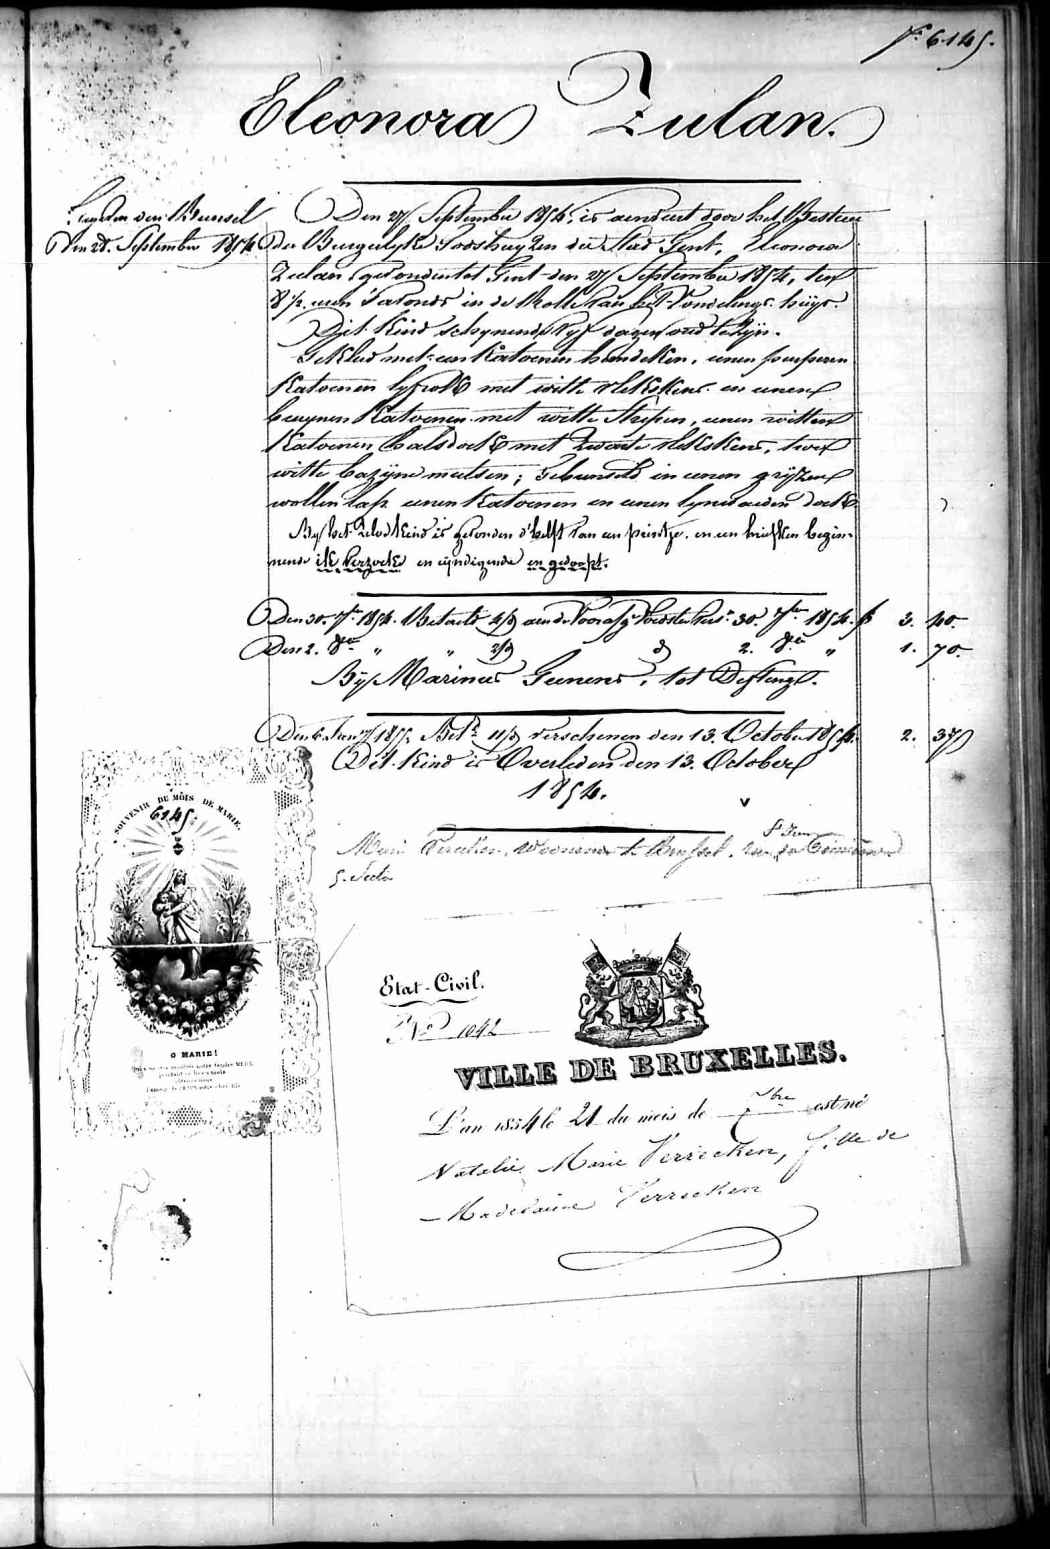 Nº 6145.
Eleonora Zulan.
den 28. September 1854
Den 27 September 1854, is aenveert door het Bestuer
der Burgelyke Godshuyzen der Stad Gent, Eleonora
Zulan, gevonden tot Gent den 27 September 1854, ten
8 1/2 uren 's avonds in de Rolle van het Vondelings-huys.
Dit Kind schynende vyf dagen oud te zyn.
Gekleed met een Katoenen hemdeken, eenen peersen
Katoenen lyfrok met witte vlekskens en eenen
bruynen Katoenen met witte Strepen, eenen witten
Katoenen halsdoek met zwarte vlekskens, twee
witte mutsen; Gebunseld in eenen gryzen
wollen lap eenen Katoenen en eenen lynwaeden doek.
By het zelve Kind is gevonden d'helft van een prentje, en een briefken begin-
nende ik verzoeke en eyndigende en gedoopt.
Den 30. 7ber 1854. Betaeld aen de 30. 7ber 1854. f 3. 40.
Den 2. 8ber " " d° 2. 8ber " 1. 70.
By Marinus Geenens, tot Desteng.
Den 6. 1855 Bet. verschenen den 13. October 1854. 2. 37
Dit Kind is Overleden den 13. October
1854.
Marie Verecken, te Brussel, rue
5. Sectie
SOUVENIR DU MOIS DE MARIE.
6145.
O MARIE!
Etat-Civil.
Nº 1042
VILLE DE BRUXELLES.
L'an 1854 le 21 du mois de 7bre est né
Natalie Marie Verrecken, fille de
Madelaine Verrecken